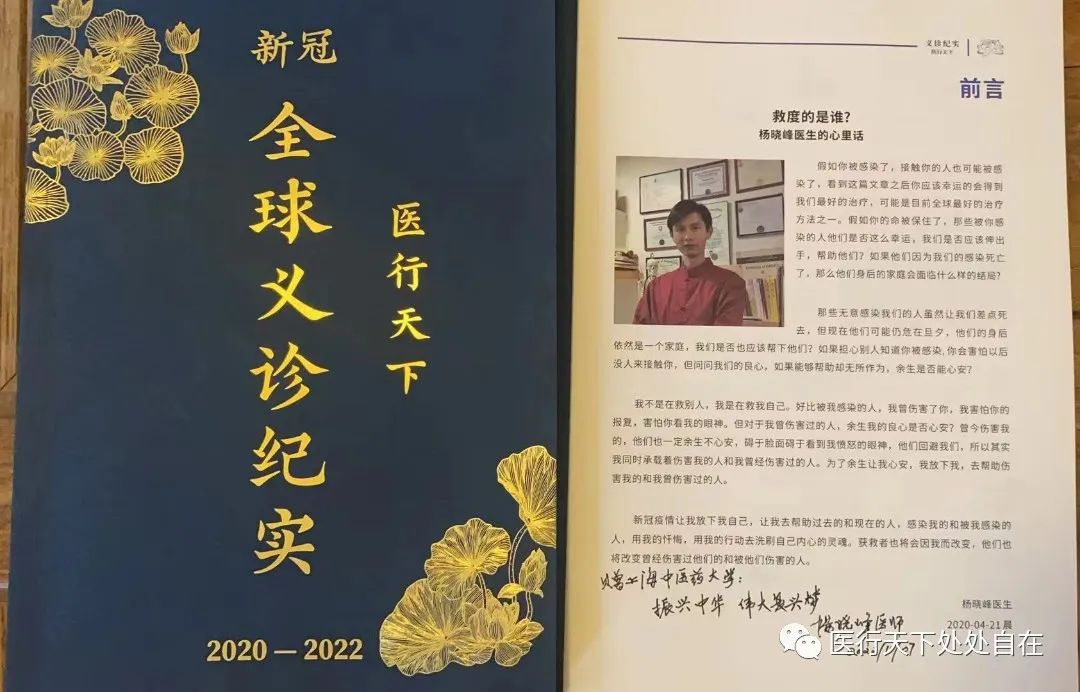 新冠
全球义诊纪实
医行天下
2020 — 2022
义诊纪实
医行天下
前言
救度的是谁?
杨晓峰医生的心里话
假如你被感染了，接触你的人也可能被感
染了，看到这篇文章之后你应该幸运的会得到
我们最好的治疗，可能是目前全球最好的治疗
方法之一。假如你的命被保住了，那些被你感
染的人他们是否这么幸运，我们是否应该伸出
手，帮助他们？如果他们因为我们的感染死亡
了，那么他们身后的家庭会面临什么样的结局?
那些无意感染我们的人虽然让我们差点死
去，但现在他们可能仍危在旦夕，他们的身后
依然是一个家庭，我们是否也应该帮下他们？如果担心别人知道你被感染,你会害怕以后
没人来接触你，但问问我们的良心，如果能够帮助却无所作为，余生是否能心安?
我不是在救别人，我是在救我自己。好比被我感染的人，我曾伤害了你，我害怕你的
报复，害怕你看我的眼神。但对于我曾伤害过的人，余生我的良心是否心安？曾今伤害我
的，他们也一定余生不心安，碍于脸面碍于看到我愤怒的眼神，他们回避我们，所以其实
我同时承载着伤害我的人和我曾经伤害过的人。为了余生让我心安，我放下我，去帮助伤
害我的和我曾伤害过的人。
新冠疫情让我放下我自己，让我去帮助过去的和现在的人，感染我的和被我感染的
人，用我的忏悔，用我的行动去洗刷自己内心的灵魂。获救者也将会因我而改变，他们也
将改变曾经伤害过他们的和被他们伤害的人。
赠上海中医药大学：
振兴中华 伟大复兴梦
杨晓峰医师
杨晓峰医生
2020-04-21晨
医行天下处处自在